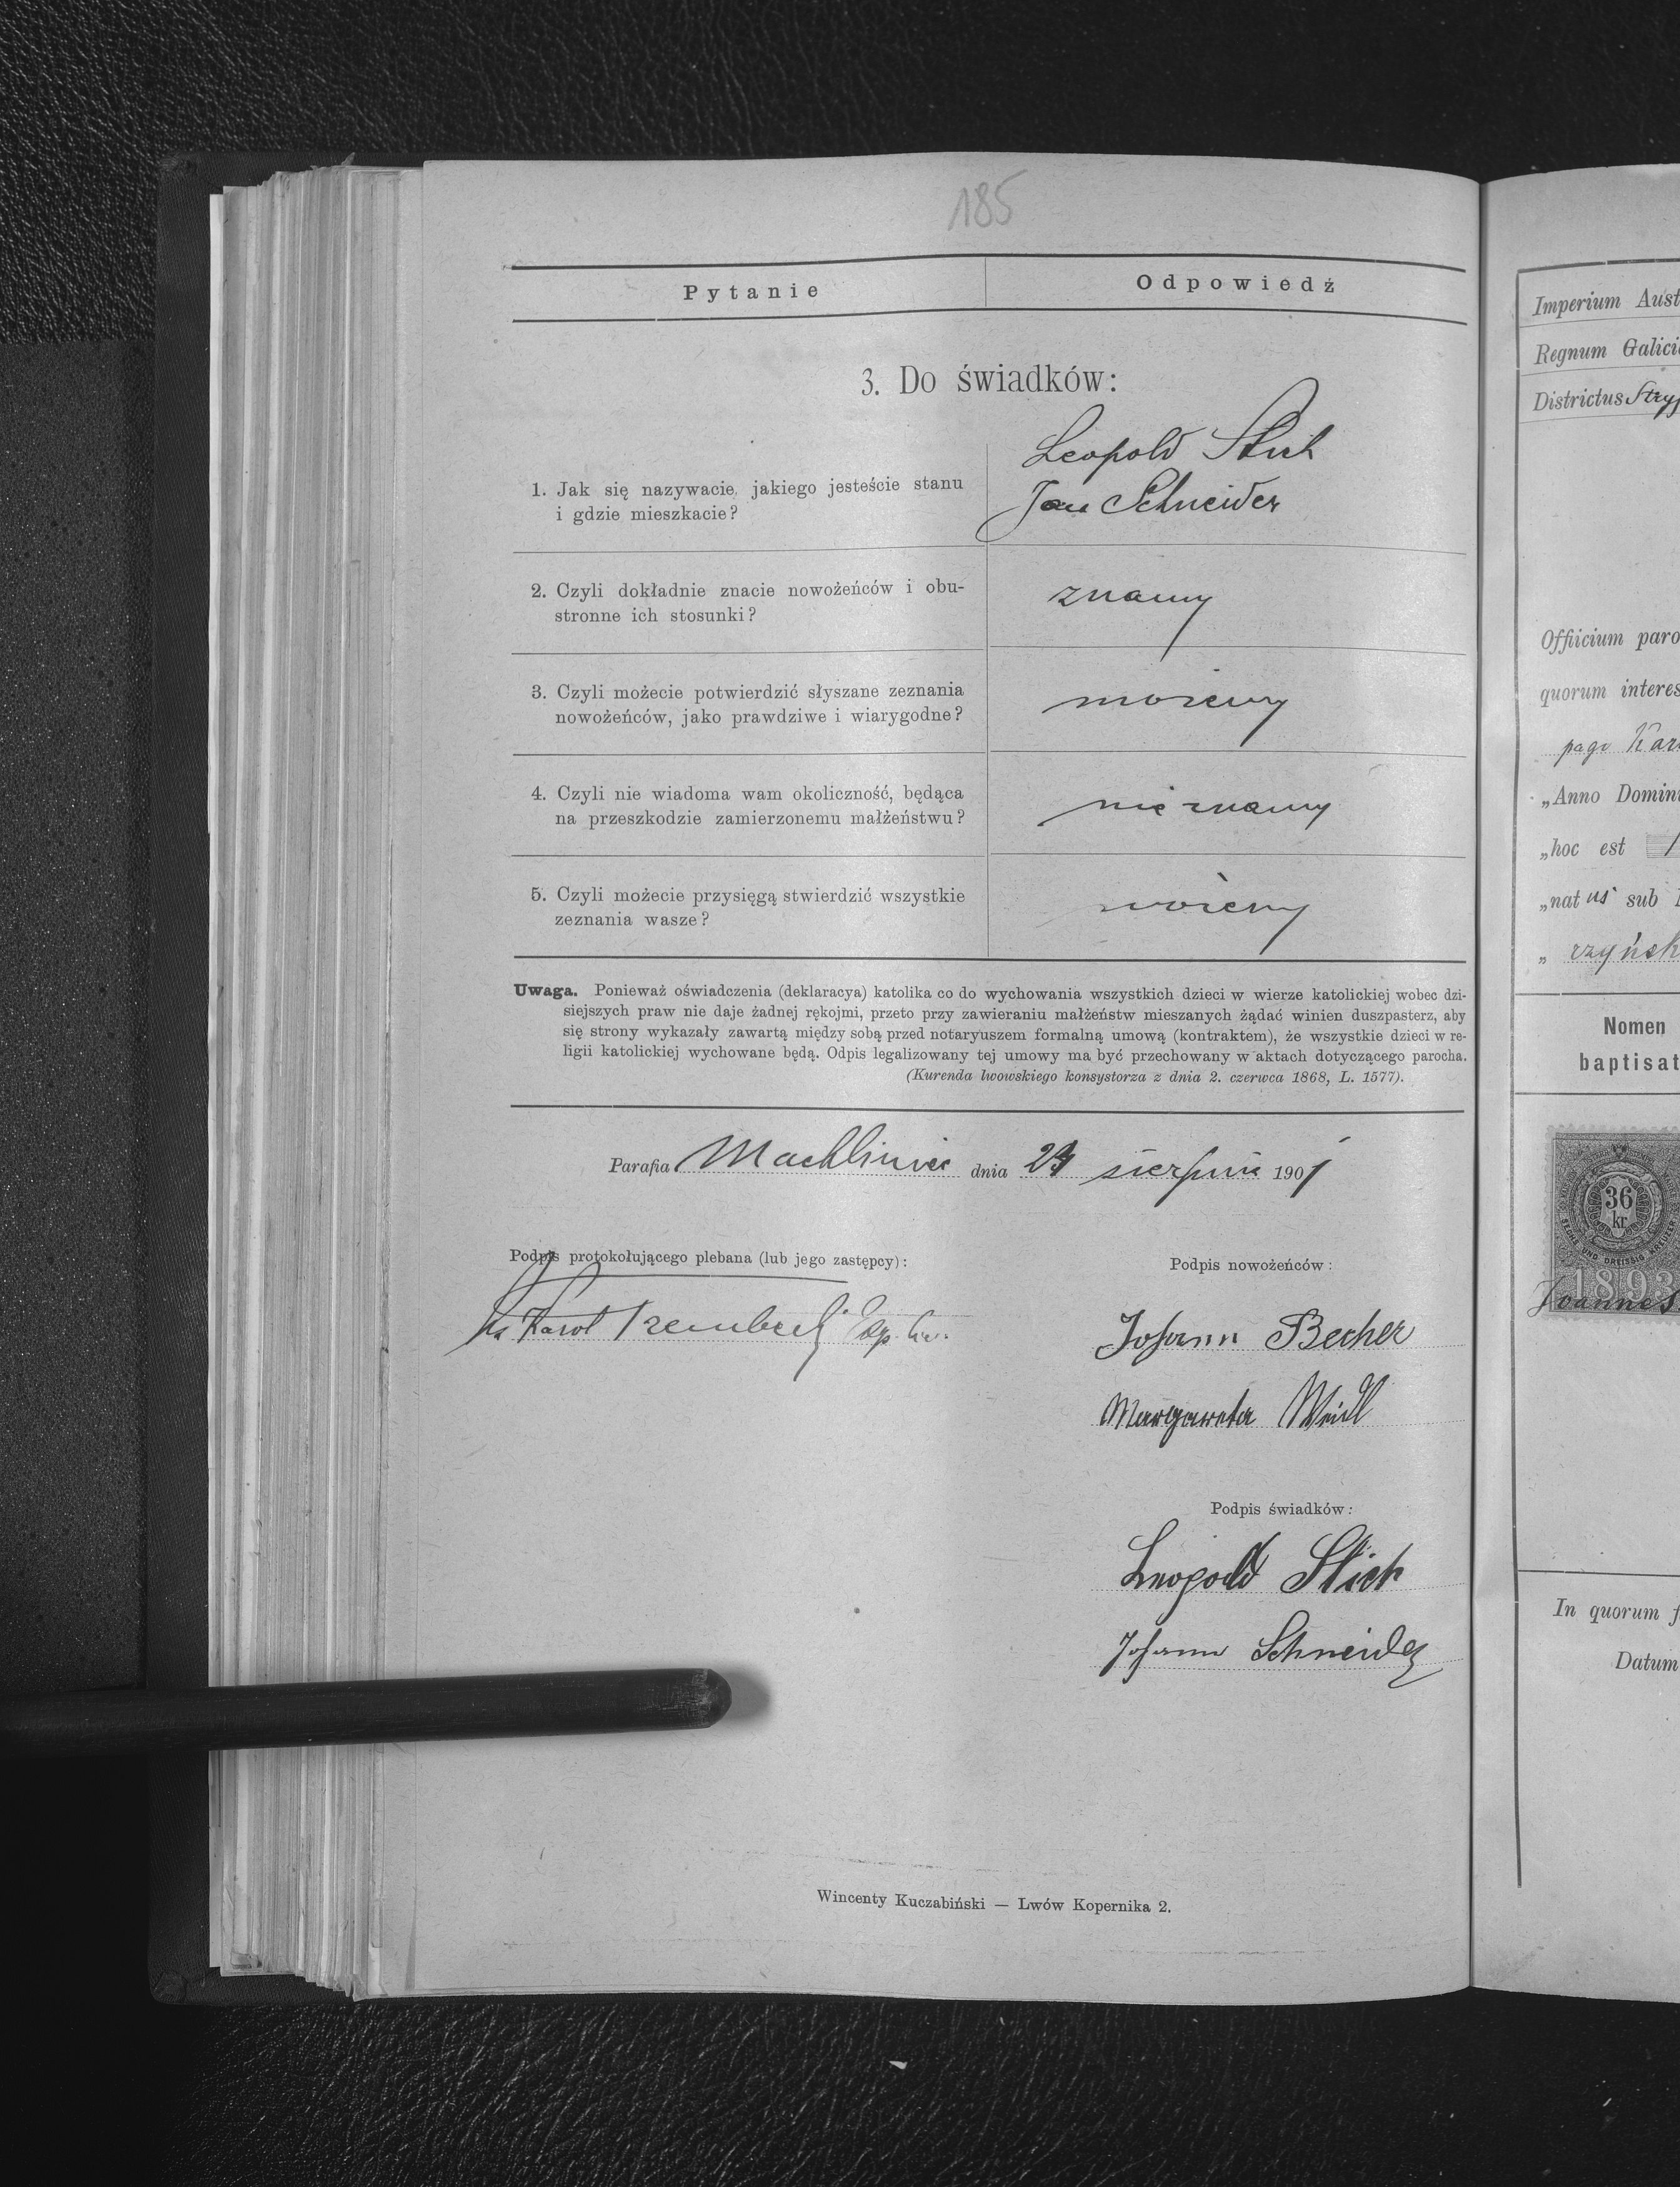 185
Pytanie Odpowiedź
3. Do świadków:
Leopold Stich
1. Jak się nazywacie, jakiego jesteście stanu
i gdzie mieszkacie?
Jan Schneider
2. Czyli dokładnie znacie nowożeńców i obu-
stronne ich stosunki?
znamy
3. Czyli możecie potwierdzić słyszane zeznania
nowożeńców, jako prawdziwe i wiarygodne?
możemy
4. Czyli nie wiadoma wam okoliczność, będąca
na przeszkodzie zamierzonemu małżeństwu?
nie znamy
5. Czyli możecie przysięgą stwierdzić wszystkie
zeznania wasze?
możemy
Uwaga. Ponieważ oświadczenia (deklaracya) katolika co do wychowania wszystkich dzieci w wierze katolickiej wobec dzi-
siejszych praw nie daje żadnej rękojmi, przeto przy zawieraniu małżeństw mieszanych żądać winien duszpasterz, aby
się strony wykazały zawartą między sobą przed notaryuszem formalną umową (kontraktem), że wszystkie dzieci w re-
ligii katolickiej wychowane będą. Odpis legalizowany tej umowy ma być przechowany w aktach dotyczącego parocha.
(Kurenda lwowskiego konsystorza z dnia 2. czerwca 1868, L. 1577).
Parafia Machliniec dnia sierpnia 1901
Podpis protokołującego plebana (lub jego zastępcy):
Ks Karol
Podpis nowożeńców:
Johann Becher
Margareta Weidl
Podpis świadków:
Leopold Stich
Johann Schneider
Wincenty Kuczabiński — Lwów Kopernika 2.
Imperium Aust
Regnum Galici
Districtus Stryj
Offiicium paro
quorum interes
pago Kar
„Anno Domin
„hoc est 1
„natus sub
„ rzyńsk
Nomen
baptisat
36
kr
SECHS UND DREISSIG KREUZER
1893
Joannes
In quorum f
Datum